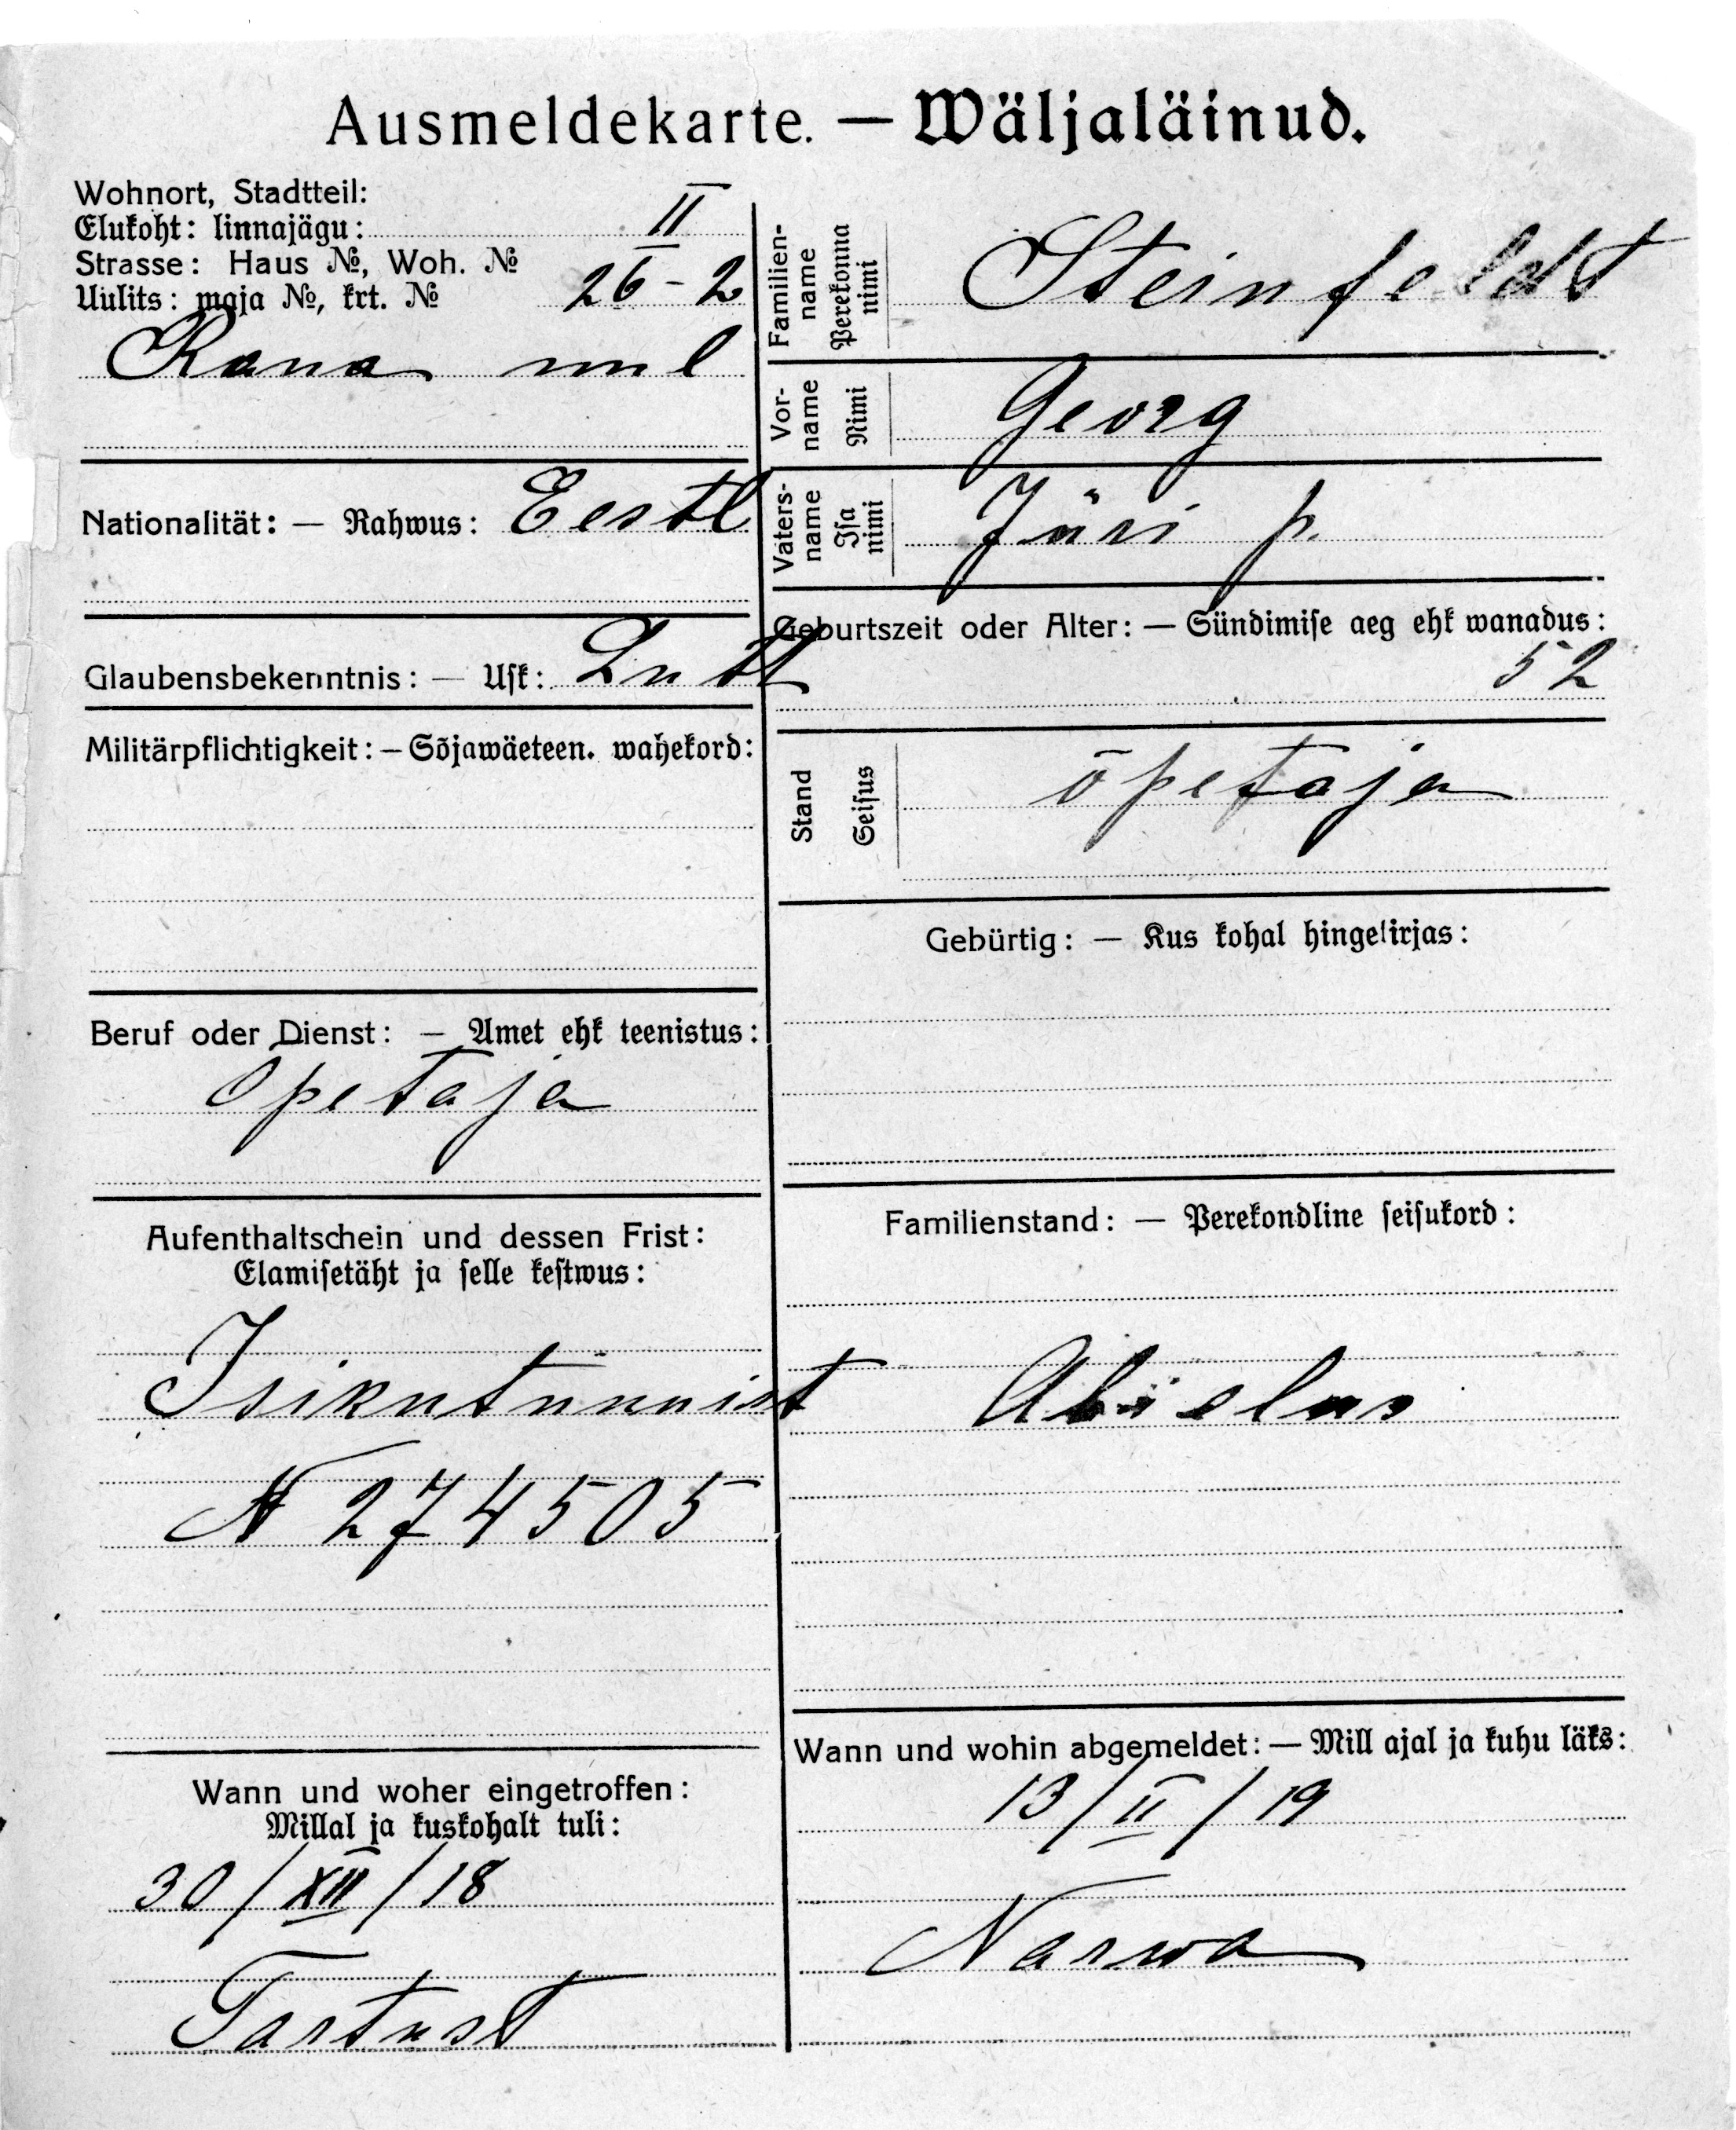 Ausmeldekarte. — Wäljaläinud.
Wohnort, Stadtteil:
Elukoht: linnajägu: II
Strasse: Haus №, Woh. №
Uulits: maja №, krt. № 26-2
Rana uul
Nationalität: — Rahwus: Eestl
Glaubensbekenntnis: — Usk: Lutt
Militärpflichtigkeit: — Sõjawäeteen. wahekord:
Beruf oder Dienst: — Amet ehk teenistus:
Opetaja
Aufenthaltschein und dessen Frist:
Elamisetäht ja selle kestwus:
Isikutunnist
N 274505
Wann und woher eingetroffen:
Millal ja kuskohalt tuli:
30/XII/18
Tartust
Familien-
name
Perekonna
nimi
Steinfeldt
Vor-
name
Nimi
Georg
Vaters-
name
Isa
nimi
Jüri p.
Geburtszeit oder Alter: — Sündimise aeg ehk wanadus:
52
Stand
Seisus
õpetaja
Gebürtig: — Kus kohal hingekirjas:
Familienstand: — Perekondline seisukord:
Abielus
Wann und wohin abgemeldet: — Mill ajal ja kuhu läks:
13/II/19
Narwa